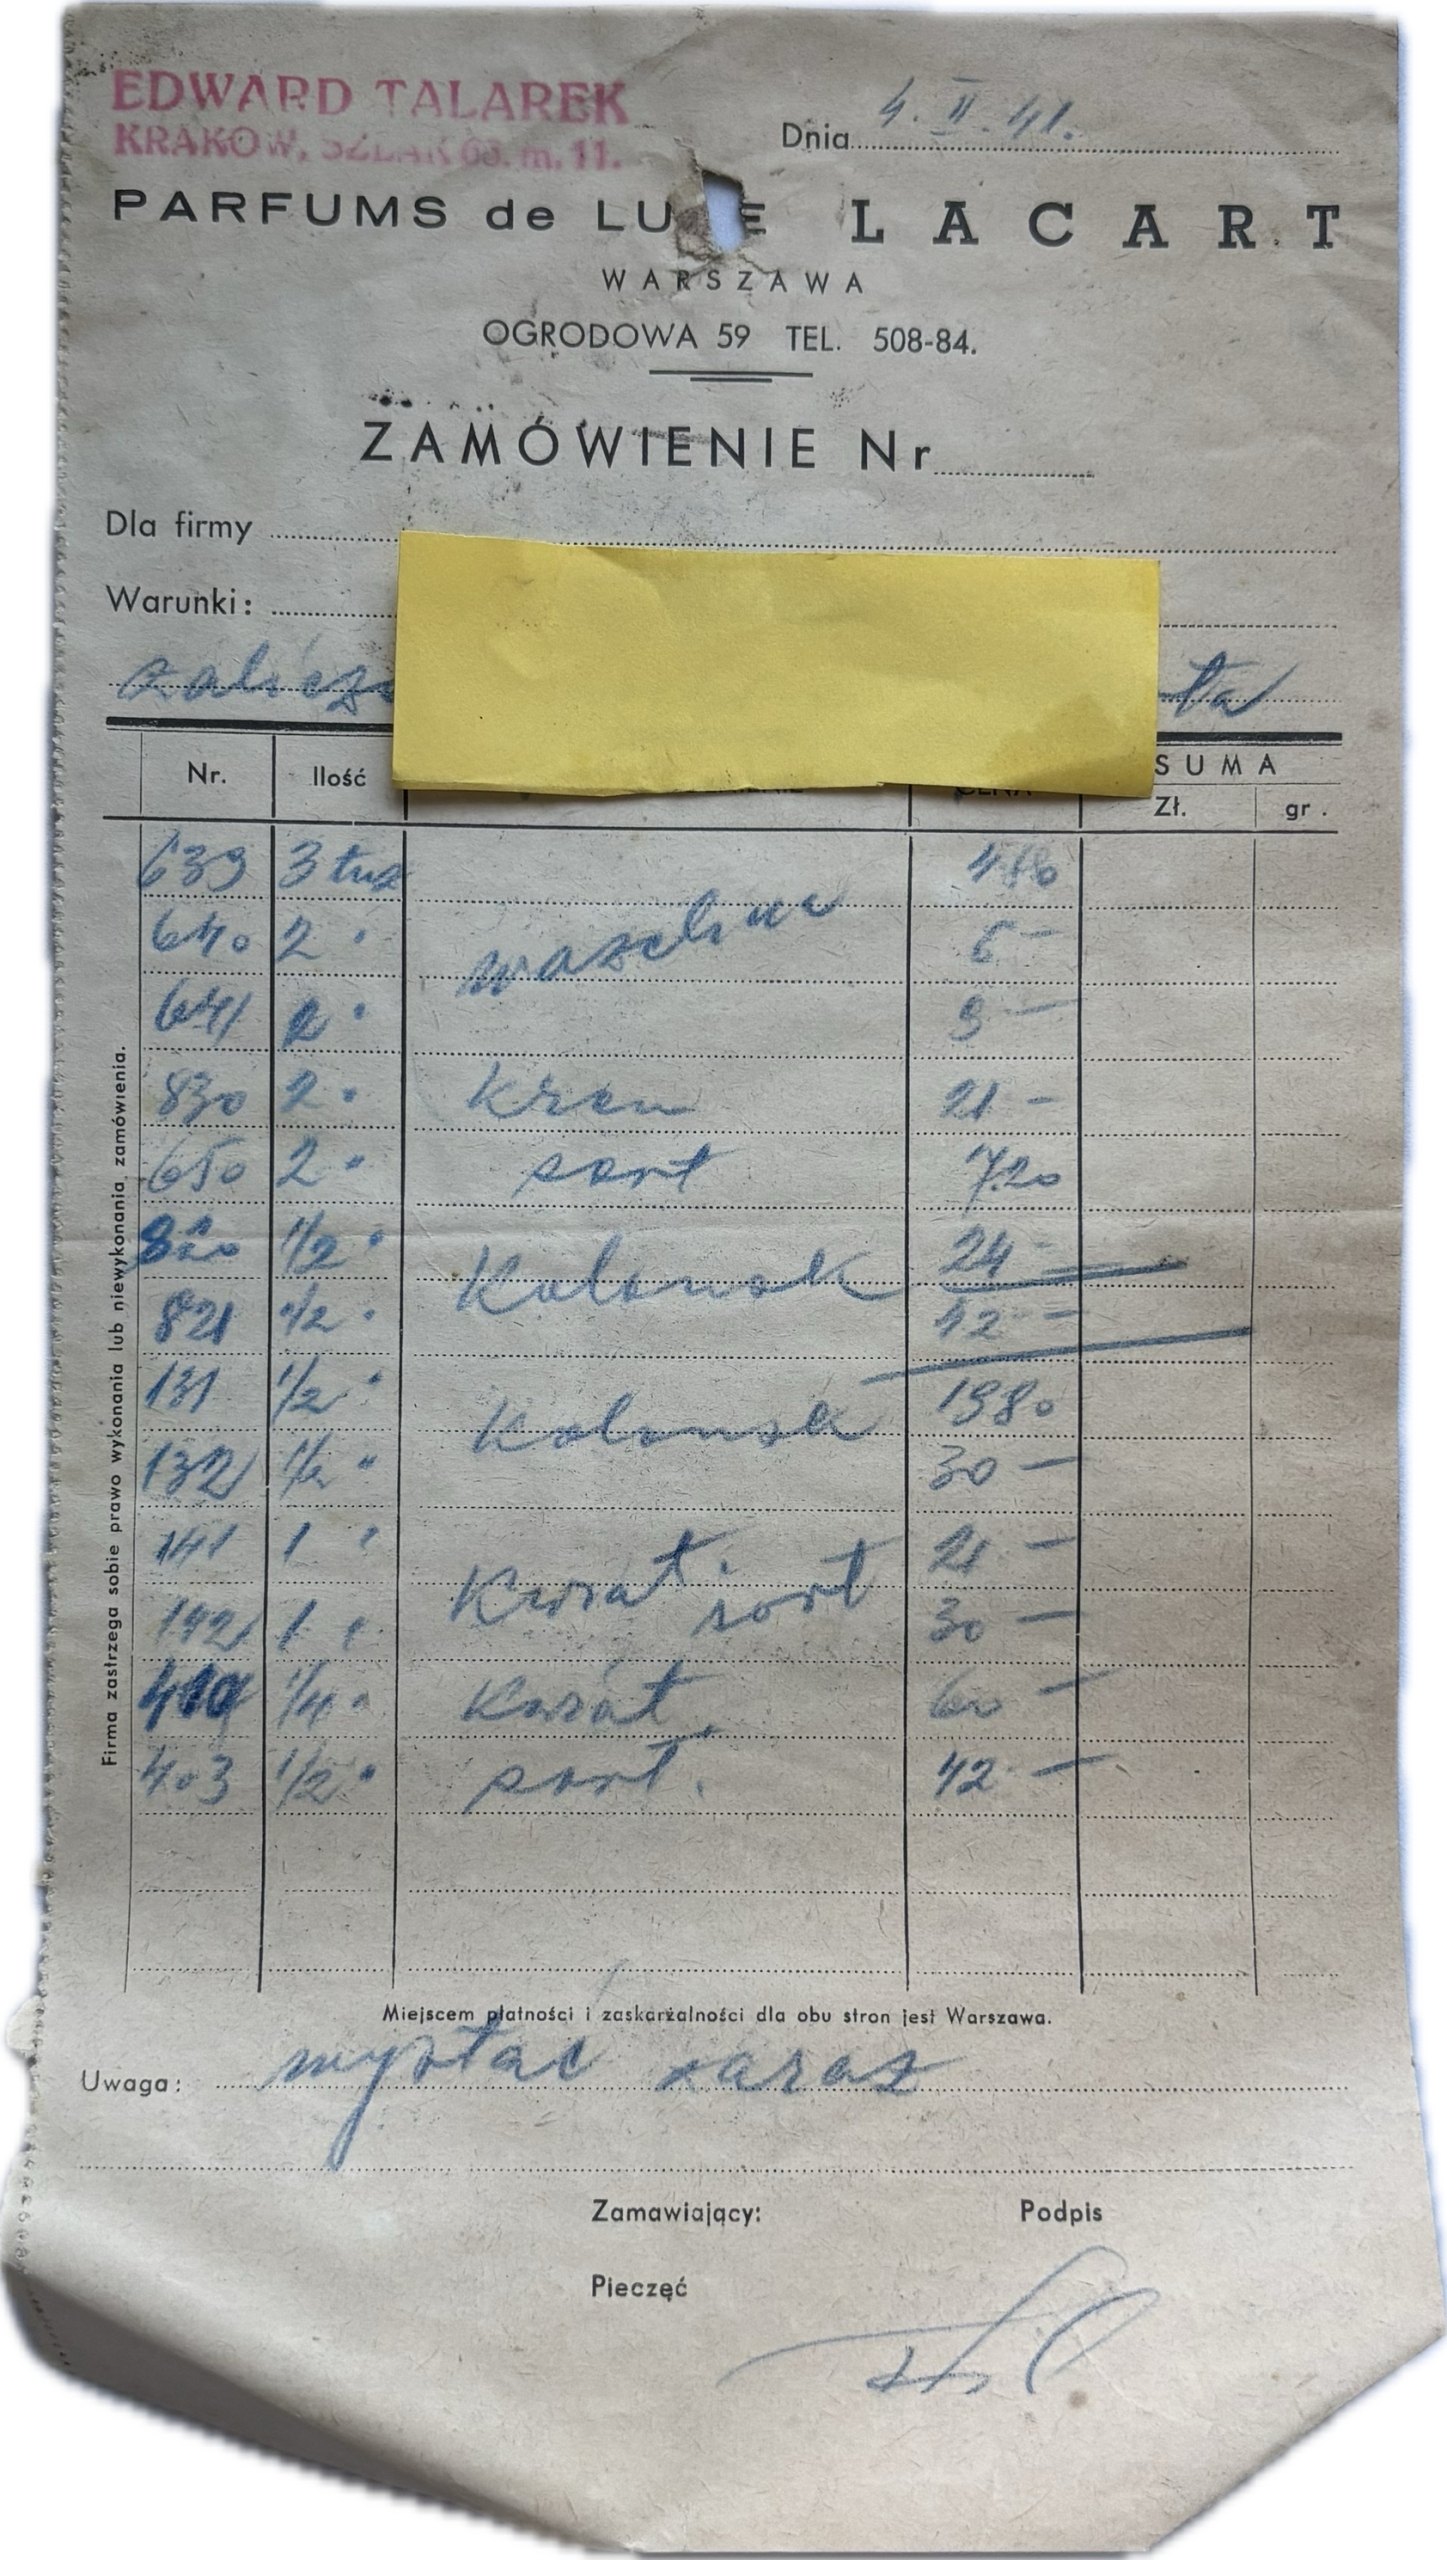 EDWARD TALAREK
KRAKOW, SZLAK 63. m. 11.
Dnia 4. II. 41.
PARFUMS de LU E LACART
WARSZAWA
OGRODOWA 59 TEL. 508-84.
ZAMÓWIENIE Nr
Dla firmy
Warunki:
Nr. Ilość SUMA
CENA Zł. gr.
639 3 tuz
640 2 " wazelina 6 -
641 2 " 9 -
830 2 " Krem 21 -
650 2 " sort 7.20
820 1/2 " 24 -
821 1/2 " Kolonsk 42 -
131 1/2 " 1980
132 1/2 " Kolonsk 30 -
141 1 " 21 -
142 1 " Kwiat. sort 30 -
410 1/4 " Kwiat. 60 -
403 1/2 " sort. 42 -
Firma zastrzega sobie prawo wykonania lub niewykonania zamówienia.
Miejscem płatności i zaskarżalności dla obu stron jest Warszawa.
Uwaga: wysłać zaraz
Zamawiający: Podpis
Pieczęć